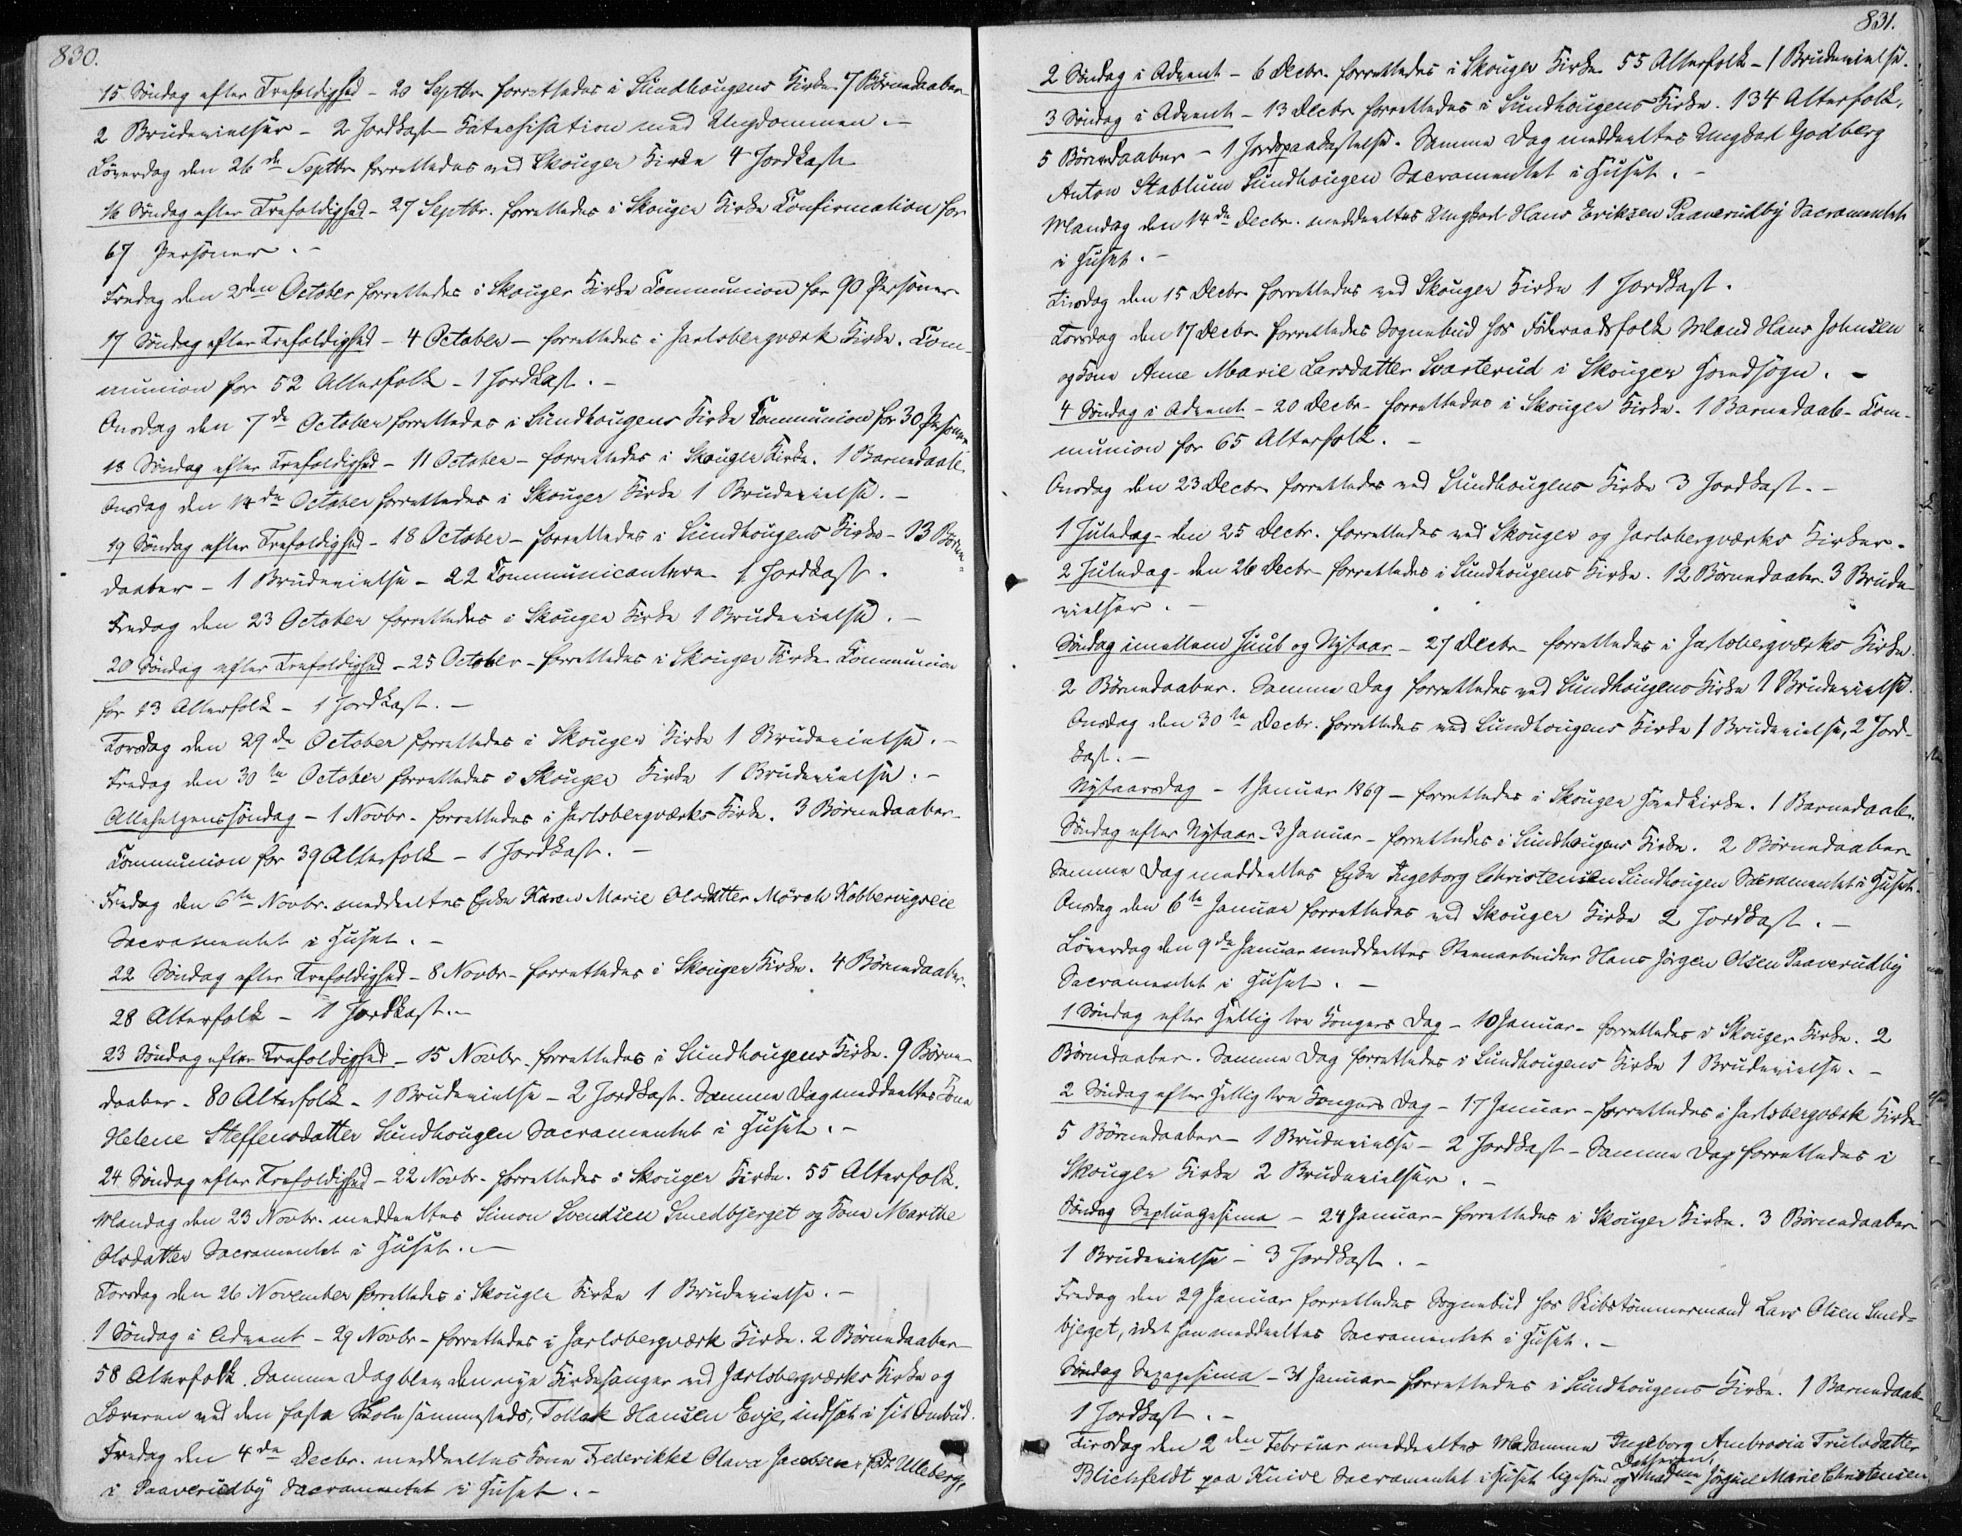 830.
15 Søndag efter Trefoldighed - 20 Septbr forrettedes i Sundhougens Kirke. 7 Børnedaaber-
2 Brudevielser - 2 Jordkast Katechisation med Ungdommen. -
Løverdag den 26de Septbr forrettedes ved Skouger Kirke 4 Jordkast
16 Søndag efter Trefoldighed - 27 Septbr. forrettedes i Skouger Kirke Confirmation for
67 Personer. -
Fredag den 2den October forrettedes i Skouger Kirke Communion for 90 Personer
17 Søndag efter Trefoldighed - 4 October - forrettedes i Jarlsbergværk Kirke. Com-
munion for 52 Alterfolk - 1 Jordkast. -
Onsdag den 7de October forrettedes i Sundhougens Kirke Communion for 30 Personer
18 Søndag efter Trefoldighed - 11 October - forrettedes i Skouger Kirke. 1 Barnedaab.
Onsdag den 14de October forrettedes i Skouger Kirke 1 Brudevielse. -
19 Søndag efter Trefoldighed - 18 October - forrettedes i Sundhougens Kirke - 13 Børne-
daaber - 1 Brudevielse - 22 Communicantere 1 Jordkast.
Fredag den 23 October forrettedes i Skouger Kirke 1 Brudevielse. -
20 Søndag efter Trefoldighed - 25 October - forrettedes i Skouger Kirke Communion
for 13 Alterfolk - 1 Jordkast. -
Torsdag den 29de October forrettedes i Skouger Kirke 1 Brudevielse. -
Fredag den 30te October forrettedes i Skouger Kirke 1 Brudevielse. -
Allehelgenssøndag - 1 Novbr. forrettedes i Jarlsbergværks Kirke. 3 Børnedaaber-
Communion for 39 Alterfolk - 1 Jordkast. -
Fredag den 6te Novbr. meddeeltes Enke Karen Marie Olsdatter Mørch Kobbervigveie
Sacramentet i Huset. -
22 Søndag efter Trefoldighed - 8 Novbr - forrettedes i Skouger Kirke. 4 Børnedaaber.
28 Alterfolk - 1 Jordkast. -
23 Søndag efter Trefoldighed - 15 Novbr. forrettedes i Sundhougens Kirke. 9 Børne-
daaber - 80 Alterfolk - 1 Brudevielse - 2 Jordkast. Samme Dag meddeeltes Kone
Helene Steffensdatter Sundhougen Sacramentet i Huset. -
24 Søndag efter Trefoldighed - 22 Novbr. forrettedes i Skouger Kirke. 55 Alterfolk.
Mandag den 23 Novbr. meddeeltes Simon Svendsen Smedbjerget og Kone Marthe
Olsdatter Sacramentet i Huset. -
Torsdag den 26 November forrettedes i Skouger Kirke 1 Brudevielse. -
1 Søndag i Advent - 29 Novbr - forrettedes i Jarlsbergværk Kirke. 2 Børnedaaber
58 Alterfolk. Samme Dag blev den nye Kirkesanger ved Jarlsbergværks Kirke og
Læreren ved den faste Skole sammesteds, Tollak Hansen Evje, indsat i sit Ombud.
Fredag den 4de Decbr. meddeeltes Kone Frederikke Olava Jansen, født Ulleberg,
i Paaverudby Sacramentet i Huset. -
831.
2 Søndag i Advent - 6 Decbr. forrettedes i Skouger Kirke 55 Alterfolk - 1 Brudevielse.
3 Søndag i Advent - 13 Decbr forrettedes i Sundhougens Kirke. 134 Alterfolk,
5 Børnedaaber - 1 Jordpaakastelse. Samme Dag meddeeltes Ungkarl Godberg
Anton Stablum Sundhougen Sacramentet i Huset. -
Mandag den 14de Decbr. meddeeltes Ungkarl Hans Eriksen Paaverudby Sacramentet
i Huset. -
Tirsdag den 15 Decbr forrettedes ved Skouger Kirke 1 Jordkast.
Torsdag den 17 Decbr forrettedes Sognebud hos Føderaadsfolk Mand Hans Johnsen
og Kone Anne Marie Larsdatter Svarterud i Skouger Hovedsogn. -
4 Søndag i Advent - 20 Decbr. forrettedes i Skouger Kirke. 1 Barnedaab - Com-
munion for 65 Alterfolk. -
Onsdag den 23 Decbr forrettedes ved Sundhougens Kirke 3 Jordkast. -
1 Juledag - den 25 Decbr. forrettedes ved Skouger og Jarlsbergværks Kirker.
2 Juledag - den 26 Decbr forrettedes i Sundhougens Kirke. 12 Børnedaaber 3 Brude-
vielser. -
Søndag imellem Juul og Nytaar - 27 Decbr forrettedes i Jarlsbergværks Kirke.
2 Børnedaaber. Samme Dag forrettedes ved Sundhougens Kirke 1 Brudevielse.
Onsdag den 30te Decbr. forrettedes ved Sundhougens Kirke 1 Brudevielse, 2 Jord-
kast. -
Nytaarsdag - 1 Januar 1869 - forrettedes i Skouger Hovedkirke. 1 Barnedaab.
Søndag efter Nytaar - 3 Januar - forrettedes i Sundhougens Kirke. 2 Børnedaaber
Samme Dag meddeeltes Enke Ingeborg Christensen Sundhougen Sacramentet i Huset.
Onsdag den 6te Januar forrettedes ved Skouger Kirke 2 Jordkast. -
Løverdag den 9de Januar meddeeltes Steenarbeider Hans Jørgen Olsen Paaverudby
Sacramentet i Huset. -
1 Søndag efter Hellig tre Kongers Dag - 10 Januar - forrettedes i Skouger Kirke. 2
Børnedaaber. Samme Dag forrettedes i Sundhougens Kirke 1 Brudevielse. -
2 Søndag efter Hellig tre Kongers Dag - 17 Januar - forrettedes i Jarlsbergværk Kirke
5 Børnedaaber - 1 Brudevielse - 2 Jordkast - Samme Dag forrettedes i
Skouger Kirke 2 Brudevielser. -
Søndag Septuagesima - 24 Januar - forrettedes i Skouger Kirke. 3 Børnedaaber
1 Brudevielse - 3 Jordkast. -
Fredag den 29 Januar forrettedes Sognebud hos Skibstømmermand Lars Olsen Smed-
bjerget, idet han meddeeltes Sacramentet i Huset. -
Søndag Sexagesima - 31 Januar - forrettedes i Sundhougens Kirke. 1 Barnedaab
1 Jordkast. -
Tirsdag den 2den Februar meddeeltes Madamme Ingeborg Ambrosia Trulsdatter
Blichfeldt paa Knive Sacramentet i Huset ligesom og Datteren, Madme Jørgine Marie Christensen